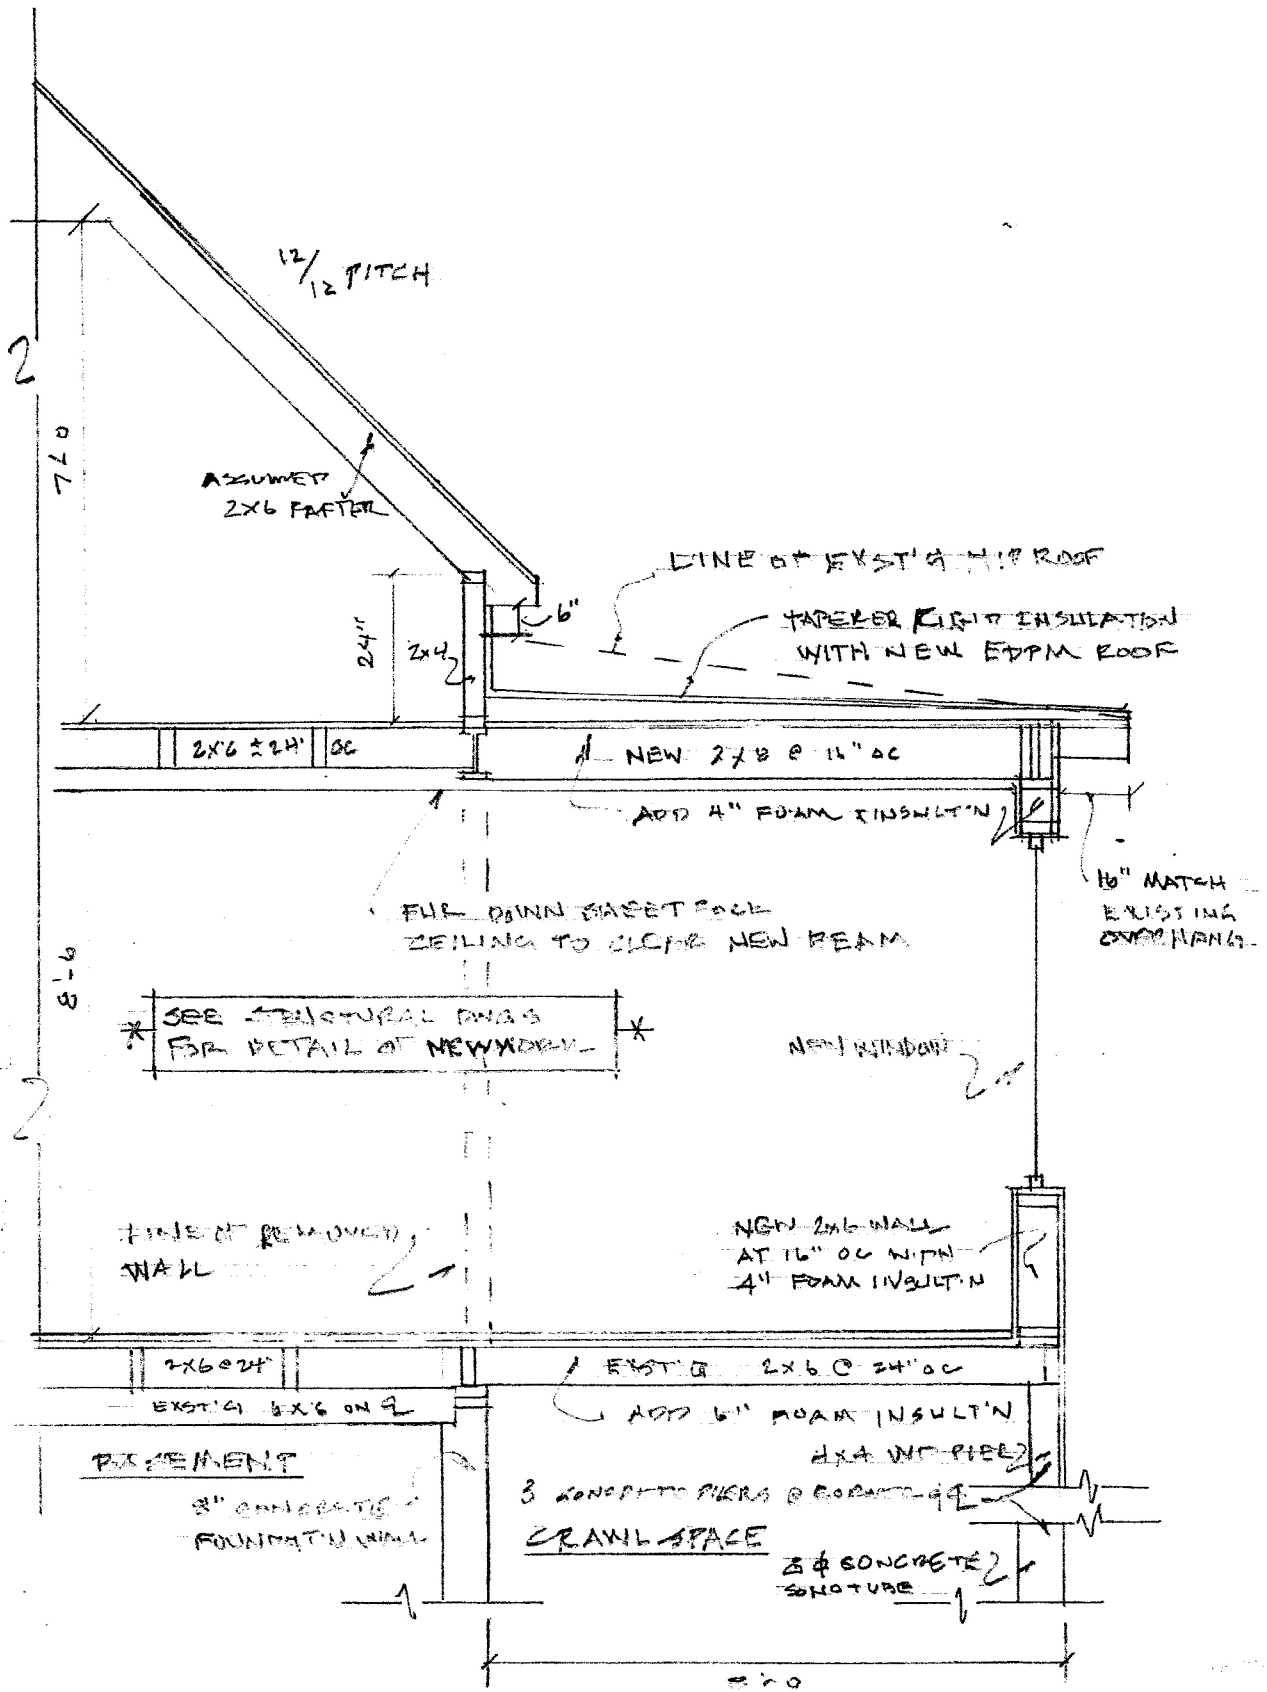 12/12 PITCH
7'-0
ASSUMED
2X6 RAFTER
LINE OF EXST'G HIP ROOF
6"
TAPERER RIGID INSULATION
WITH NEW EDPM ROOF
24"
2x4
2X6 ± 24" OC
NEW 2X8 @ 16" OC
ADD 4" FOAM INSULT'N
16" MATCH
EXISTING
OVERHANG
FUR DOWN SHEET ROCK
CEILING TO CLEAR NEW BEAM
8'-6
SEE STRUCTURAL DWGS
FOR DETAIL OF NEW WORK
NEW WINDOW
LINE OF REMOVED
WALL
NEW 2x6 WALL
AT 16" OC WITH
4" FOAM INSULT'N
2X6 @ 24"
EXST'G 2X6 @ 24" OC
EXST'G 6X6 ON ℄
ADD 6" FOAM INSULT'N
BASEMENT
4X4 PIER
8" CONCRETE
FOUNDAT'N WALL
3 CONCRETE PIERS @ CORNER
CRAWL SPACE
CONCRETE
SONOTUBE
8'-0